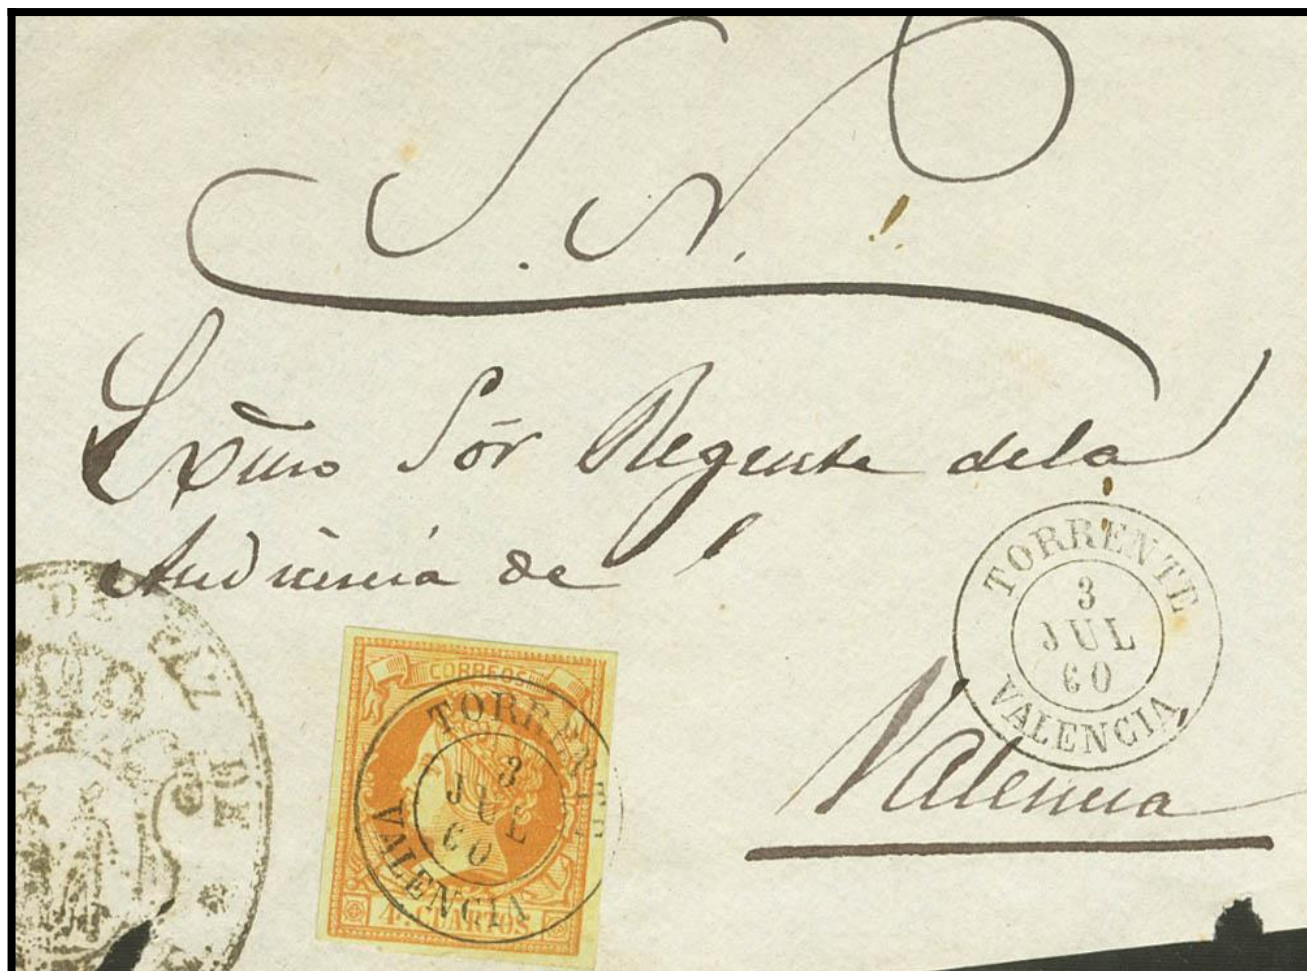 S. N.
Exmo Sór Regente dela
Audiencia de
Valencia
TORRENTE
3
JUL
60
VALENCIA
CORREOS
TORRENTE
3
JUL
60
VALENCIA
4 CUARTOS
DE PAZ DE